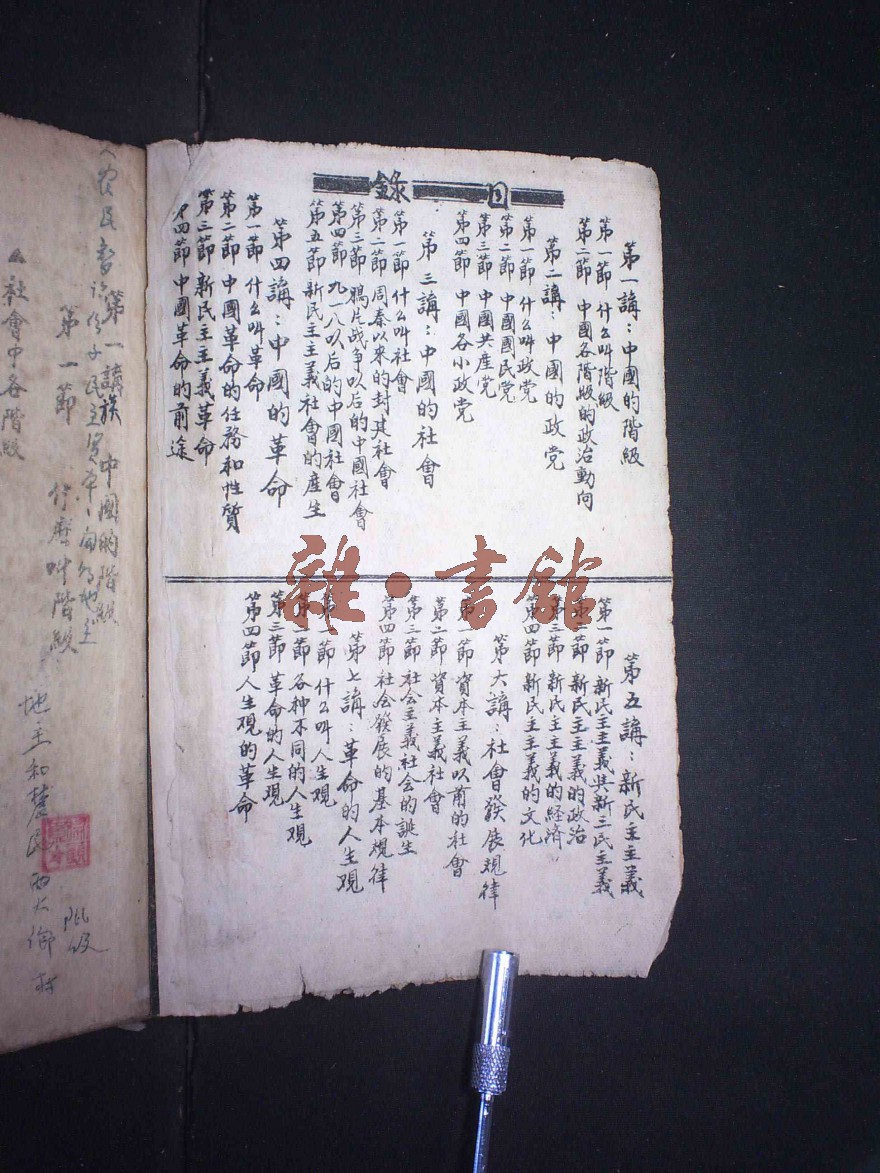 目錄
第一講：中國的階級
第一節 什么叫階級
第二節 中國各階級的政治動向
第二講：中國的政党
第一節 什么叫政党
第二節 中國國民党
第三節 中國共產党
第四節 中國各小政党
第三講：中國的社會
第一節 什么叫社會
第二節 周秦以來的封建社會
第三節 鴉片战争以后的中國社會
第四節 九一八以后的中國社會
第五節 新民主主義社會的產生
第四講：中國的革命
第一節 什么叫革命
第二節 中國革命的任務和性質
第三節 新民主主義革命
第四節 中國革命的前途
第五講：新民主主義
第一節 新民主主義與新三民主義
第二節 新民主主義的政治
第三節 新民主主義的經濟
第四節 新民主主義的文化
第六講：社會發展規律
第一節 資本主義以前的社會
第二節 資本主義社會
第三節 社会主義社会的誕生
第四節 社会發展的基本規律
第七講：革命的人生观
第一節 什么叫人生观
第二節 各种不同的人生观
第三節 革命的人生观
第四節 人生观的革命
第一講 中國的階級
第一節 什麽叫階級
社會中各階級
地主和農民
階级
雜·書館